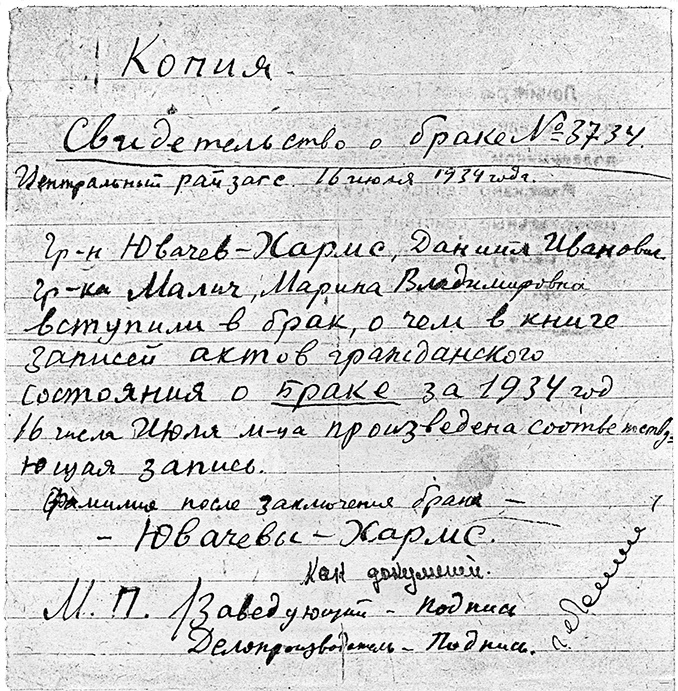 Копия.
Свидетельство о браке № 3734.
Центральный райзагс. 16 июля 1934 года.
Гр-н Ювачев-Хармс, Даниил Иванович
Гр-ка Малич, Марина Владимировна
вступили в брак, о чем в книге
записей актов гражданского
состояния о браке за 1934 год
16 числа Июля м-ца произведена соответству-
ющая запись.
Фамилия после заключения брака —
– Ювачевы – Хармс.
Как документ.
М. П. Заведующий – подпись
Делопроизводитель – Подпись.